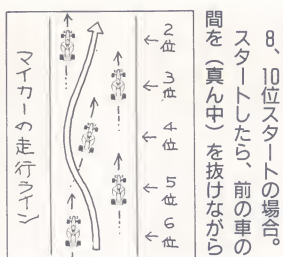 8、10位スタートの場合。
スタートしたら、前の車の
間を（真ん中）を抜けながら
2位
3位
4位
5位
6位
マイカーの走行ライン